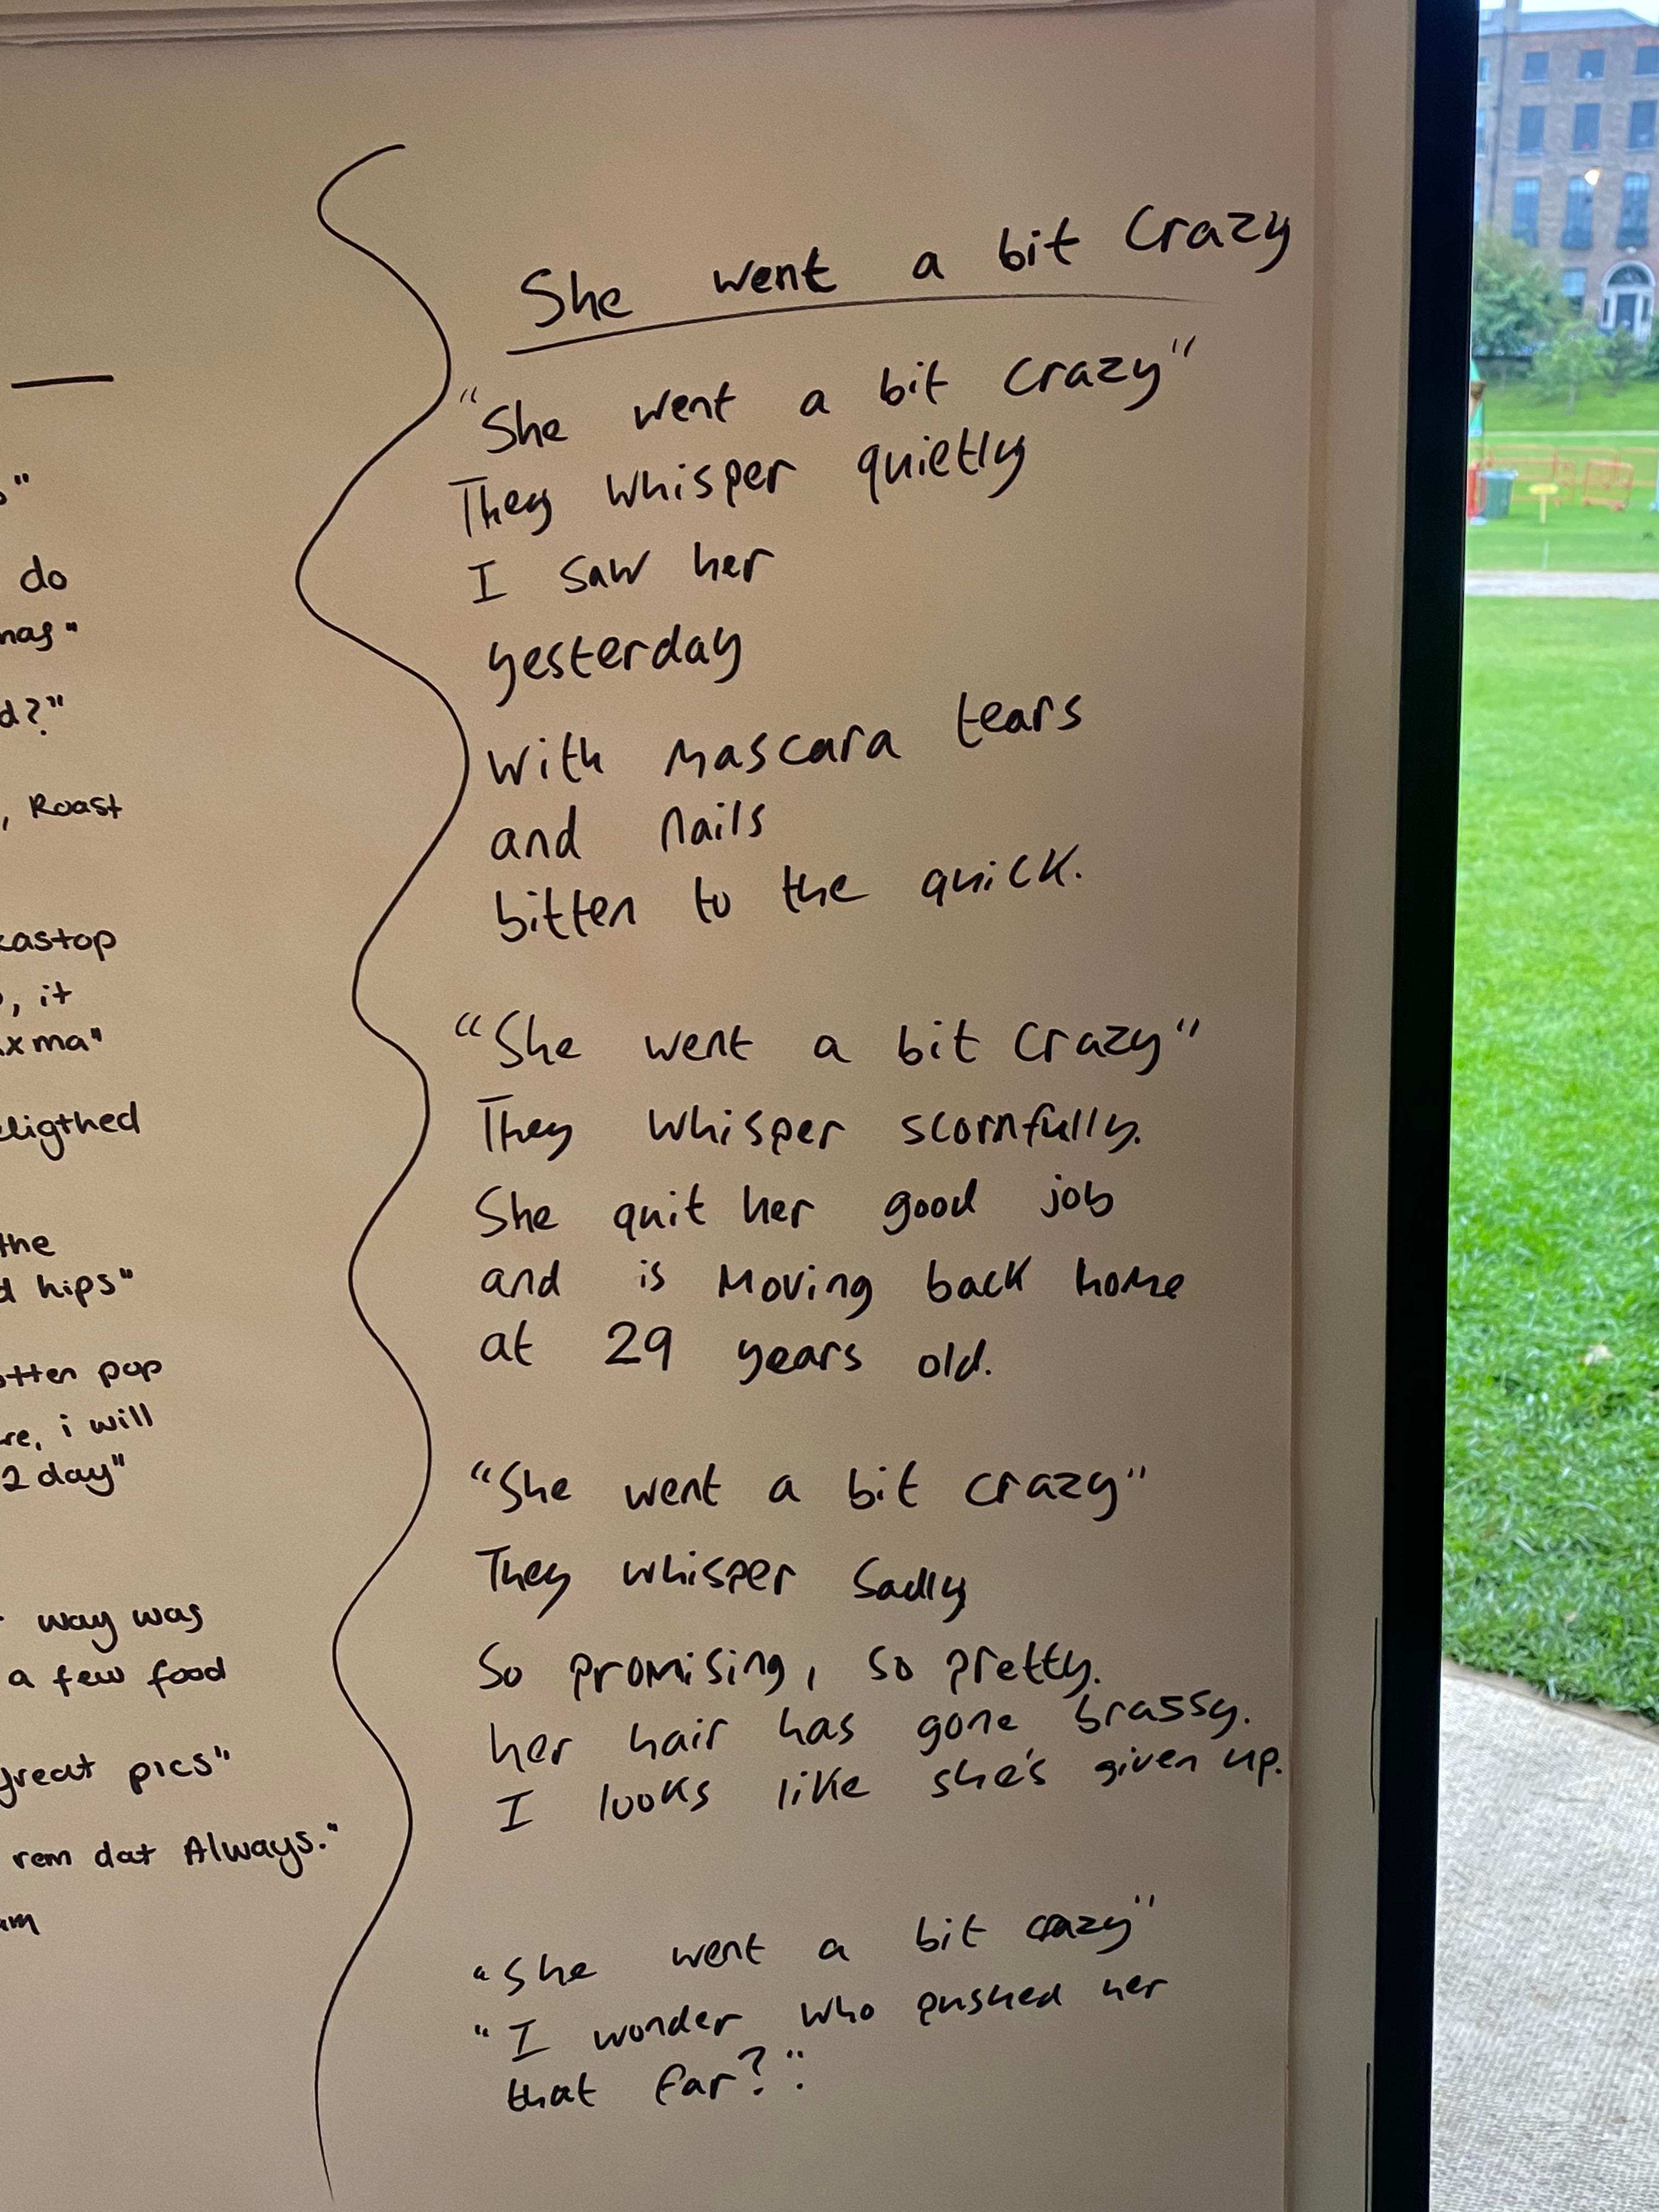 do
d?"
, Roast
, it
the
d hips"
pop
i will
2 day"
way was
a few food
great pics"
rem dat Always."
She went a bit crazy
"She went a bit crazy"
They whisper quietly
I saw her
yesterday
with mascara tears
and nails
bitten to the quick.
"She went a bit crazy"
They whisper scornfully.
She quit her good job
and is moving back home
at 29 years old.
"She went a bit crazy"
They whisper sadly
So promising, so pretty.
her hair has gone brassy.
I looks like she's given up.
"She went a bit crazy"
"I wonder who pushed her
that far?"